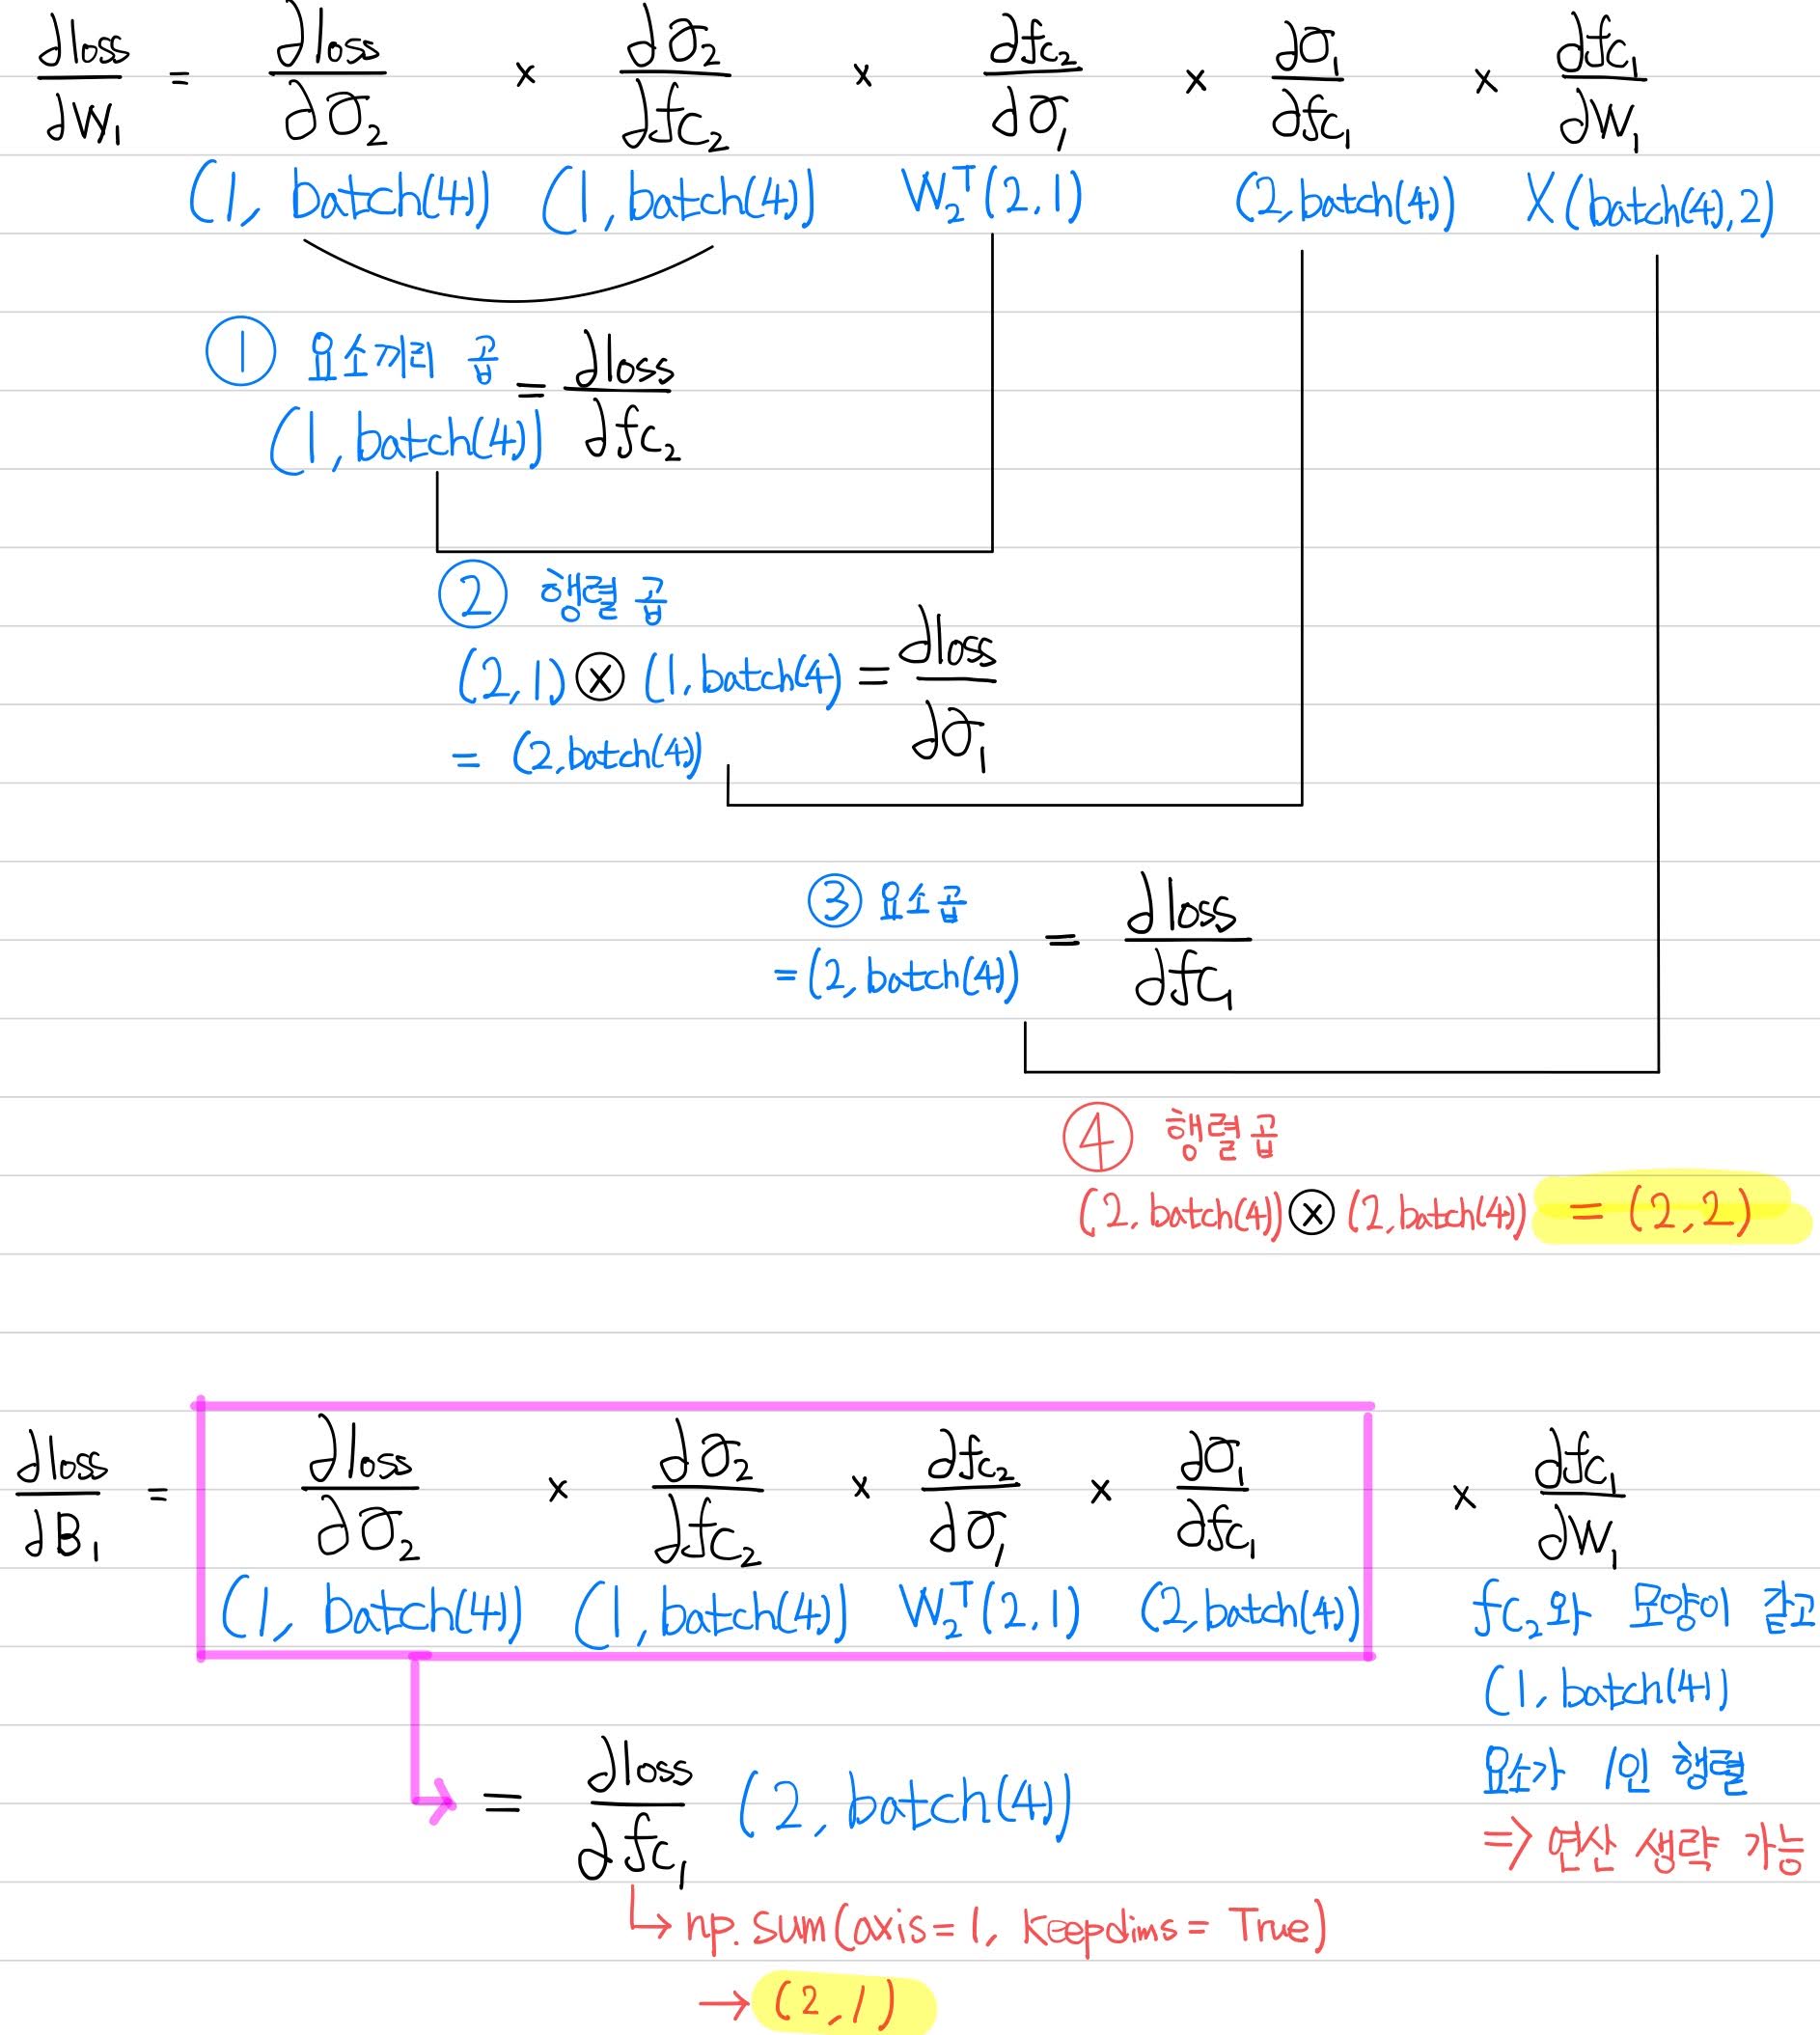 ∂loss/∂W₁ = ∂loss/∂σ₂ × ∂σ₂/∂fc₂ × ∂fc₂/∂σ₁ × ∂σ₁/∂fc₁ × ∂fc₁/∂W₁
(1, batch(4)) (1, batch(4)) W₂ᵀ(2,1) (2,batch(4)) X(batch(4),2)
① 요소끼리 곱
(1, batch(4)) = ∂loss/∂fc₂
② 행렬 곱
(2,1) ⊗ (1,batch(4) = ∂loss/∂σ₁
= (2,batch(4))
③ 요소곱
= (2, batch(4)) = ∂loss/∂fc₁
④ 행렬곱
(2, batch(4)) ⊗ (2,batch(4)) = (2,2)
∂loss/∂B₁ = ∂loss/∂σ₂ × ∂σ₂/∂fc₂ × ∂fc₂/∂σ₁ × ∂σ₁/∂fc₁ × ∂fc₁/∂W₁
(1, batch(4)) (1, batch(4)) W₂ᵀ(2,1) (2,batch(4)) fc₂와 모양이 같고
(1, batch(4))
요소가 1인 행렬
⇒ 연산 생략 가능
= ∂loss/∂fc₁ (2, batch(4))
↳ np.sum(axis=1, keepdims = True)
→ (2,1)